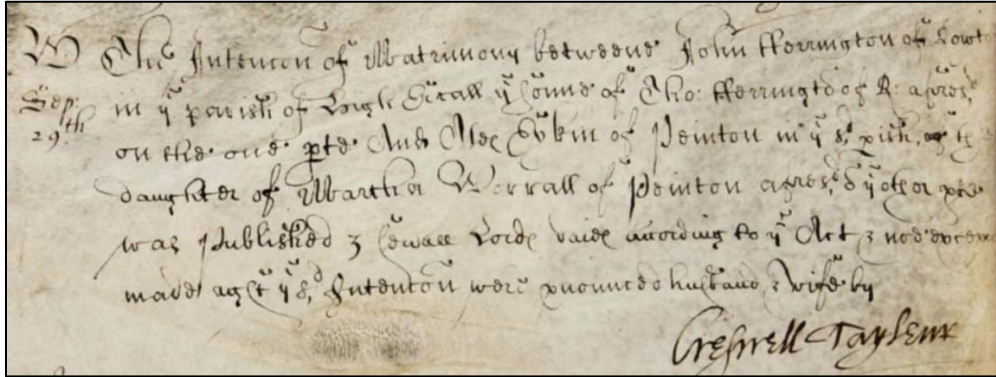 W The Intencon of Matrimony betweene John Fferrington of Lowto
Sep: in yͤ parish of Leigh yͤ sonne of Tho: Fferringto of R: afores,ᵈ
29th on the one pte And of Peinton in yͤ sᵈ, pish, yͤ
daughter of Martha Worrall of Peinton afores,ᵈ yͤ other pte
was published 3 Lords daies according to yͤ Act & noe excep
made agt yͤ s,ᵈ Intencon were pnounced husband & wife by
Creswell Tayleur